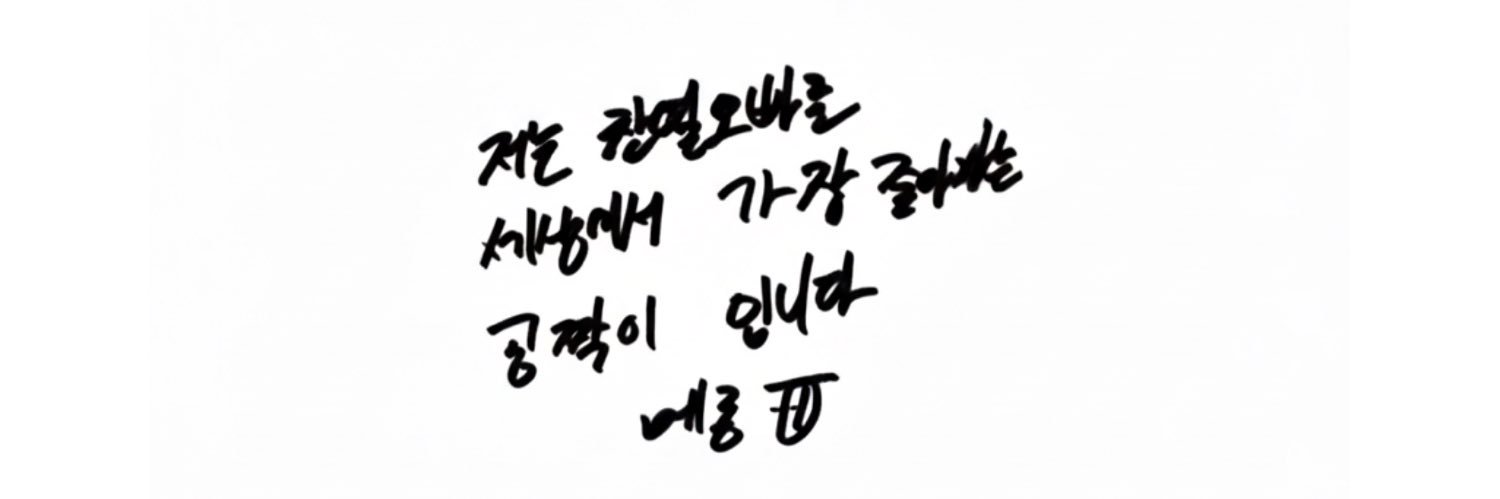 저는 찬열오빠를
세상에서 가장 좋아하는
공짝이 입니다
메롱